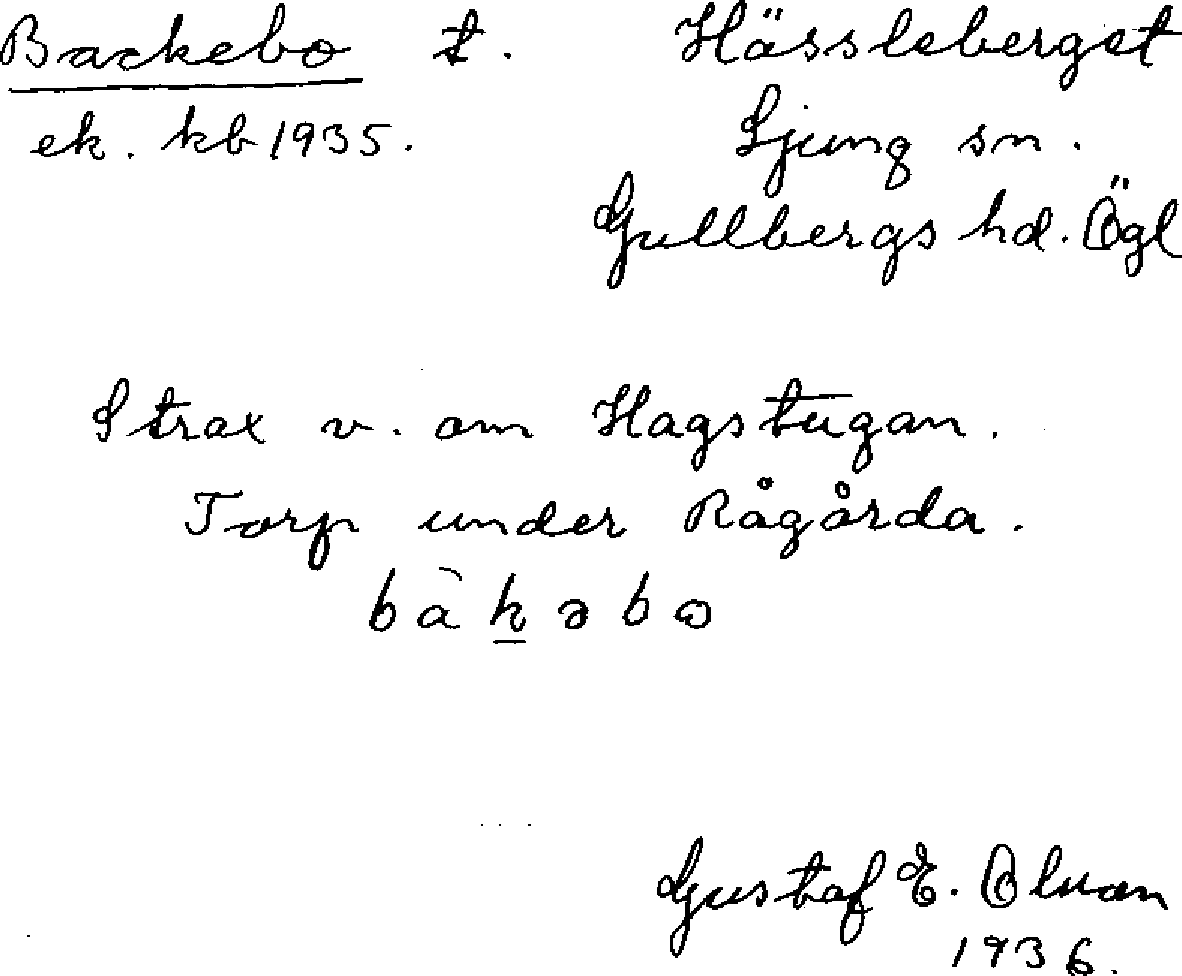 Backebo t. Hässleberget
ek. kb 1935. Ljung sn.
Gullbergs hd. Ögl
Strax v. om Hagstugan.
Torp under Rågårda.
Gustaf E.
1936.